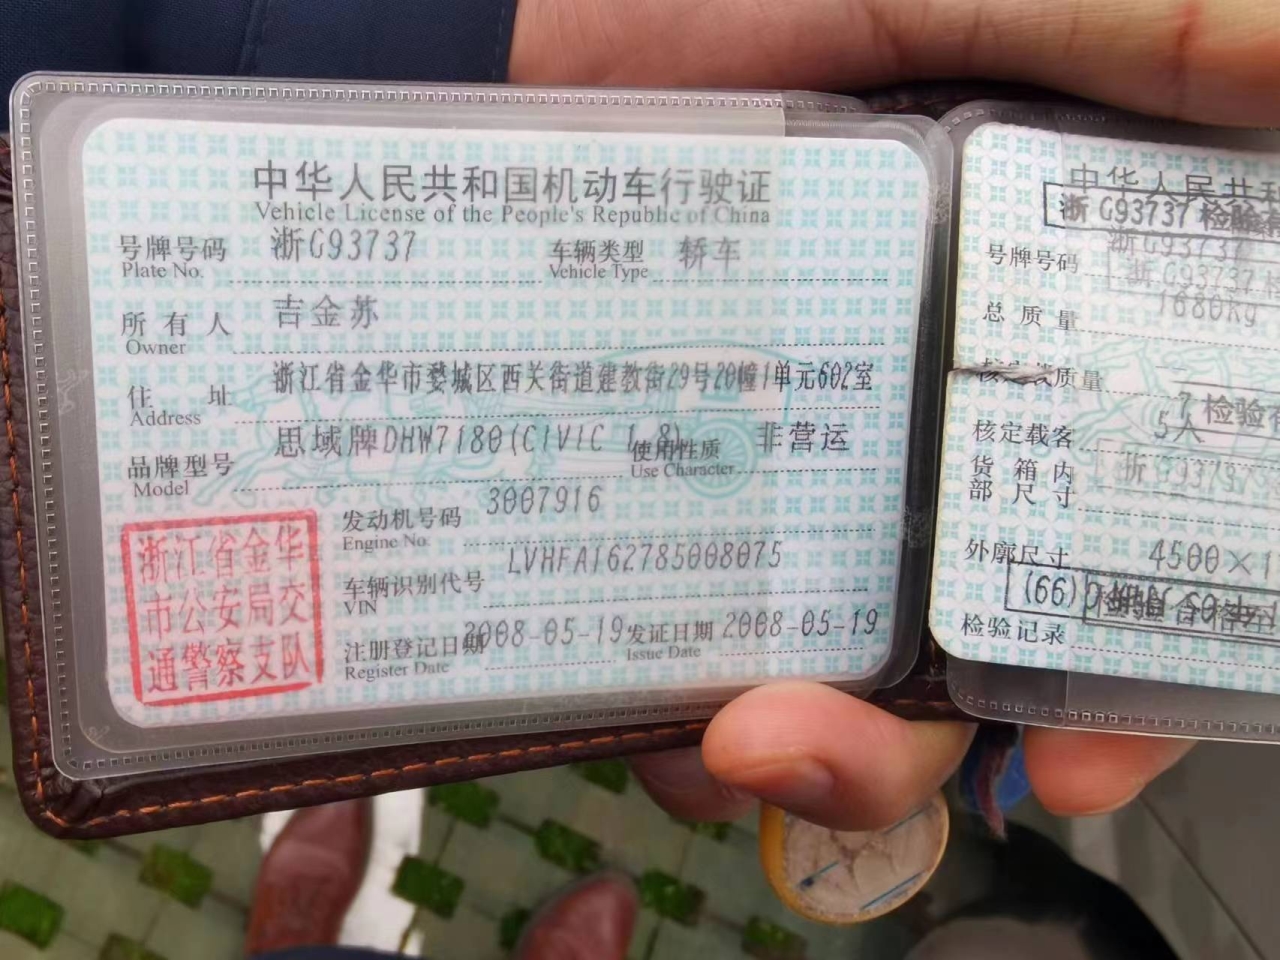 中华人民共和国机动车行驶证
Vehicle License of the People's Republic of China
号牌号码 浙G93737 车辆类型 轿车
Plate No. Vehicle Type
所有人 吉金苏
Owner
住址 浙江省金华市婺城区西关街道健教街29号20幢1单元602室
Address
品牌型号 思域牌DHW7180(CIVIC 1.8) 使用性质 非营运
Model Use Character
发动机号码 3007916
Engine No.
车辆识别代号 LVHFA162785008075
VIN
注册登记日期 2008-05-19 发证日期 2008-05-19
Register Date Issue Date
浙江省金华
市公安局交
通警察支队
中华人民共和
浙G93737 检验
号牌号码 浙G93737
浙G93737
总质量 1680kg
核定载质量 --
检验
核定载客 5人
货箱内
部尺寸
浙G93737
外廓尺寸 4500×1
(66)
检验记录